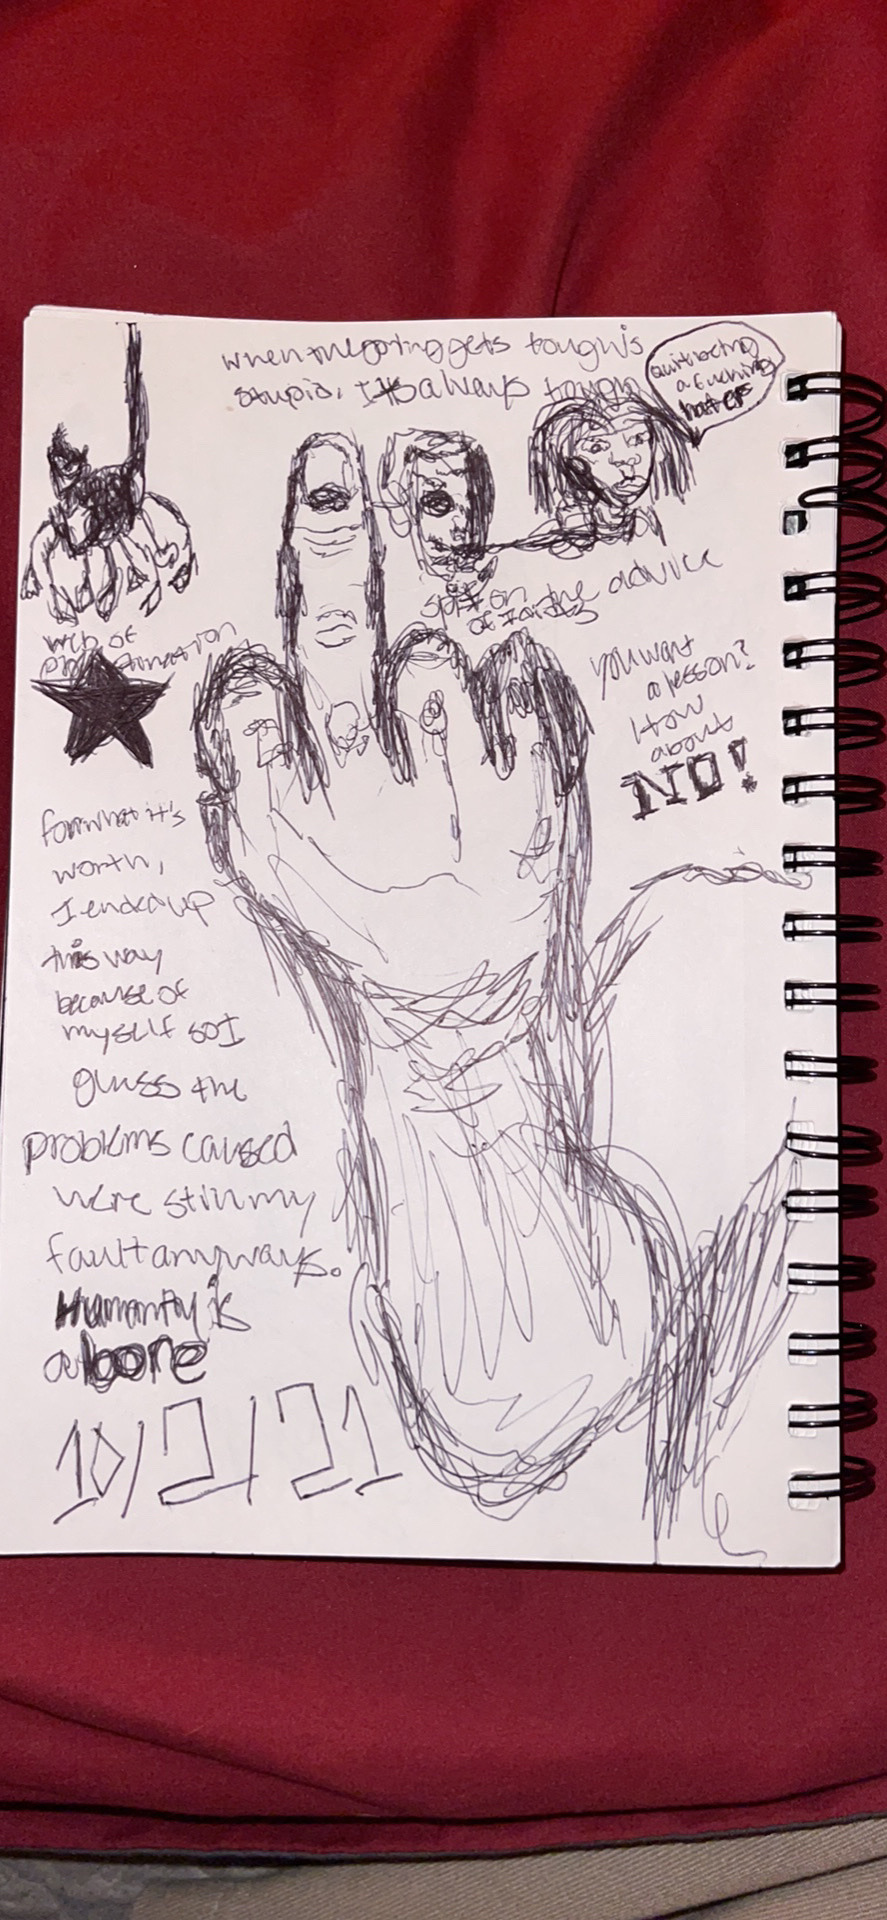 when the going gets tough is
stupid, It's always tough
Quit being
a fucking
haters
spit on the advice
of
web of
you want
a lesson?
How
about
NO!
for what it's
worth,
I ended up
this way
because of
myself so I
guess the
problems caused
were still my
fault anyways.
Humanity is
a bore
10/2/21